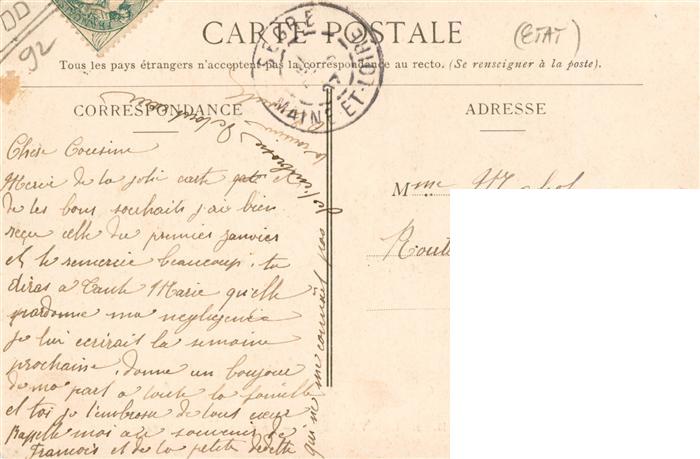 DD
92
CARTE POSTALE
(ETAT)
Tous les pays étrangers n'acceptent pas la correspondance au recto. (Se renseigner à la poste).
MAINE-ET-LOIRE
CORRESPONDANCE
ADRESSE
Chère Cousine
Merci de la jolie carte et
de tes bons souhaits j'ai bien
reçu celle du premier janvier
et te remercie beaucoup. tu
diras a Tante Marie qu'elle
pardonne ma negligence
je lui ecrirait la semaine
prochaine. donne un bonjour
de ma part a toute la famille
et toi je t'embrasse de tout cœur
Rappelle moi au souvenir de
Francois et de la petite
qui ne me connait pas
je l'embrasse
Mme
Route